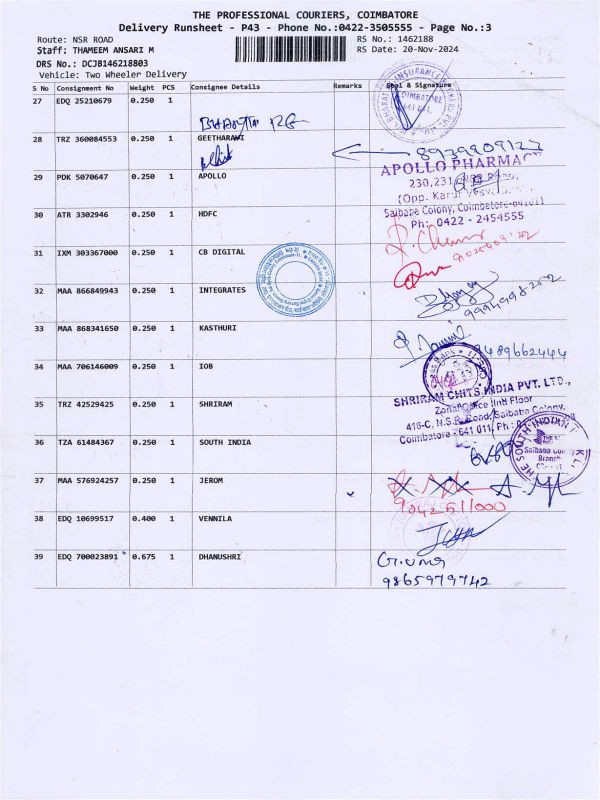 THE PROFESSIONAL COURIERS, COIMBATORE
Delivery Runsheet - P43 - Phone No.:0422-3505555 - Page No.:3
Route: NSR ROAD
RS No.: 1462188
Staff: THAMEEM ANSARI M
RS Date: 20-Nov-2024
DRS No.: DCJB146218803
Vehicle: Two Wheeler Delivery
S No Consignment No Weight PCS Consignee Details Remarks Seal & Signature
27 EDQ 25210679 0.250 1
28 TRZ 360084553 0.250 1 GEETHARANI
8939809127
29 PDK 5070647 0.250 1 APOLLO
APOLLO PHARMACY
230,231
(Opp. Karur Vysya
Saibaba Colony, Coimbatore-641011
Ph: 0422 - 2454555
30 ATR 3302946 0.250 1 HDFC
31 IXM 303367000 0.250 1 CB DIGITAL
32 MAA 866849943 0.250 1 INTEGRATES
9994998252
33 MAA 868341650 0.250 1 KASTHURI
9489662444
34 MAA 706146009 0.250 1 IOB
35 TRZ 42529425 0.250 1 SHRIRAM
SHRIRAM CHITS INDIA PVT. LTD.,
Zonal Office IInd Floor
416-C, N.S.R. Road, Saibaba Colony,
Coimbatore - 641 011, Ph :
36 TZA 61484367 0.250 1 SOUTH INDIA
THE SOUTH INDIAN
Saibaba Colony
Branch
37 MAA 576924257 0.250 1 JEROM
9042511000
38 EDQ 10699517 0.400 1 VENNILA
39 EDQ 700023891 0.675 1 DHANUSHRI
G.uma
9865979742